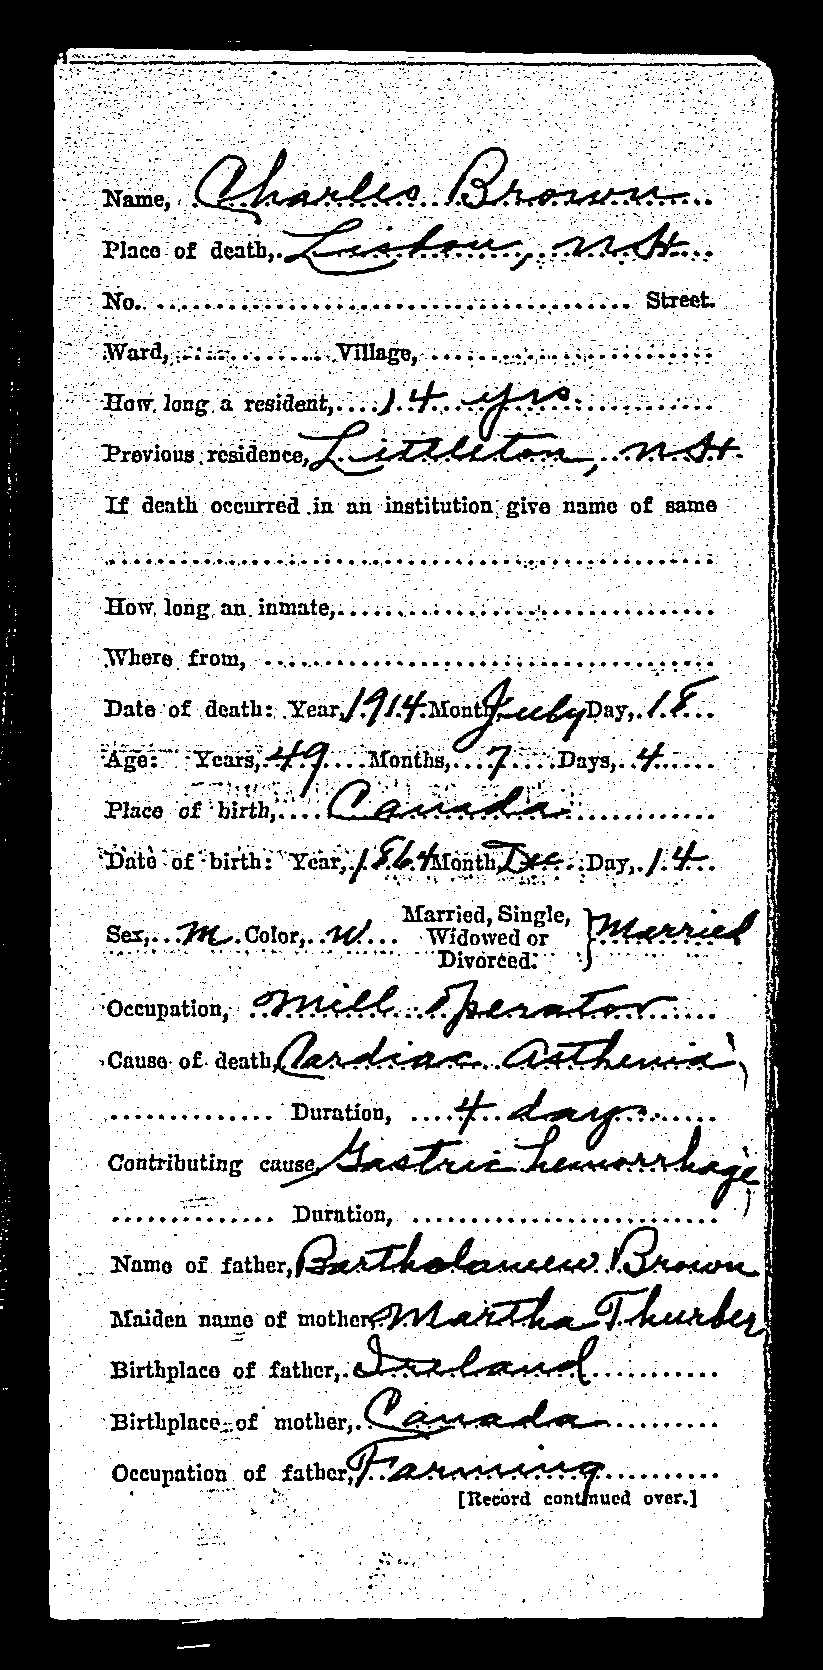 Name, Charles Brown
Place of death, Lisbon, N.H.
No. Street.
Ward, Village,
How long a resident, 14 yrs.
Previous residence, Littleton, N.H.
If death occurred in an institution give name of same
How long an inmate,
Where from,
Date of death: Year, 1914 Month, July Day, 18
Age: Years, 49 Months, 7 Days, 4
Place of birth, Canada
Date of birth: Year, 1864 Month, Dec. Day, 14
Sex, M Color, W Married, Single, Widowed or Divorced. } Married
Occupation, Mill Operator
Cause of death, Cardiac Asthenia,
Duration, 4 days
Contributing cause, Gastric hemorrhage,
Duration,
Name of father, Bartholamew Brown
Maiden name of mother, Martha Thurber
Birthplace of father, Ireland
Birthplace of mother, Canada
Occupation of father, Farming
[Record continued over.]